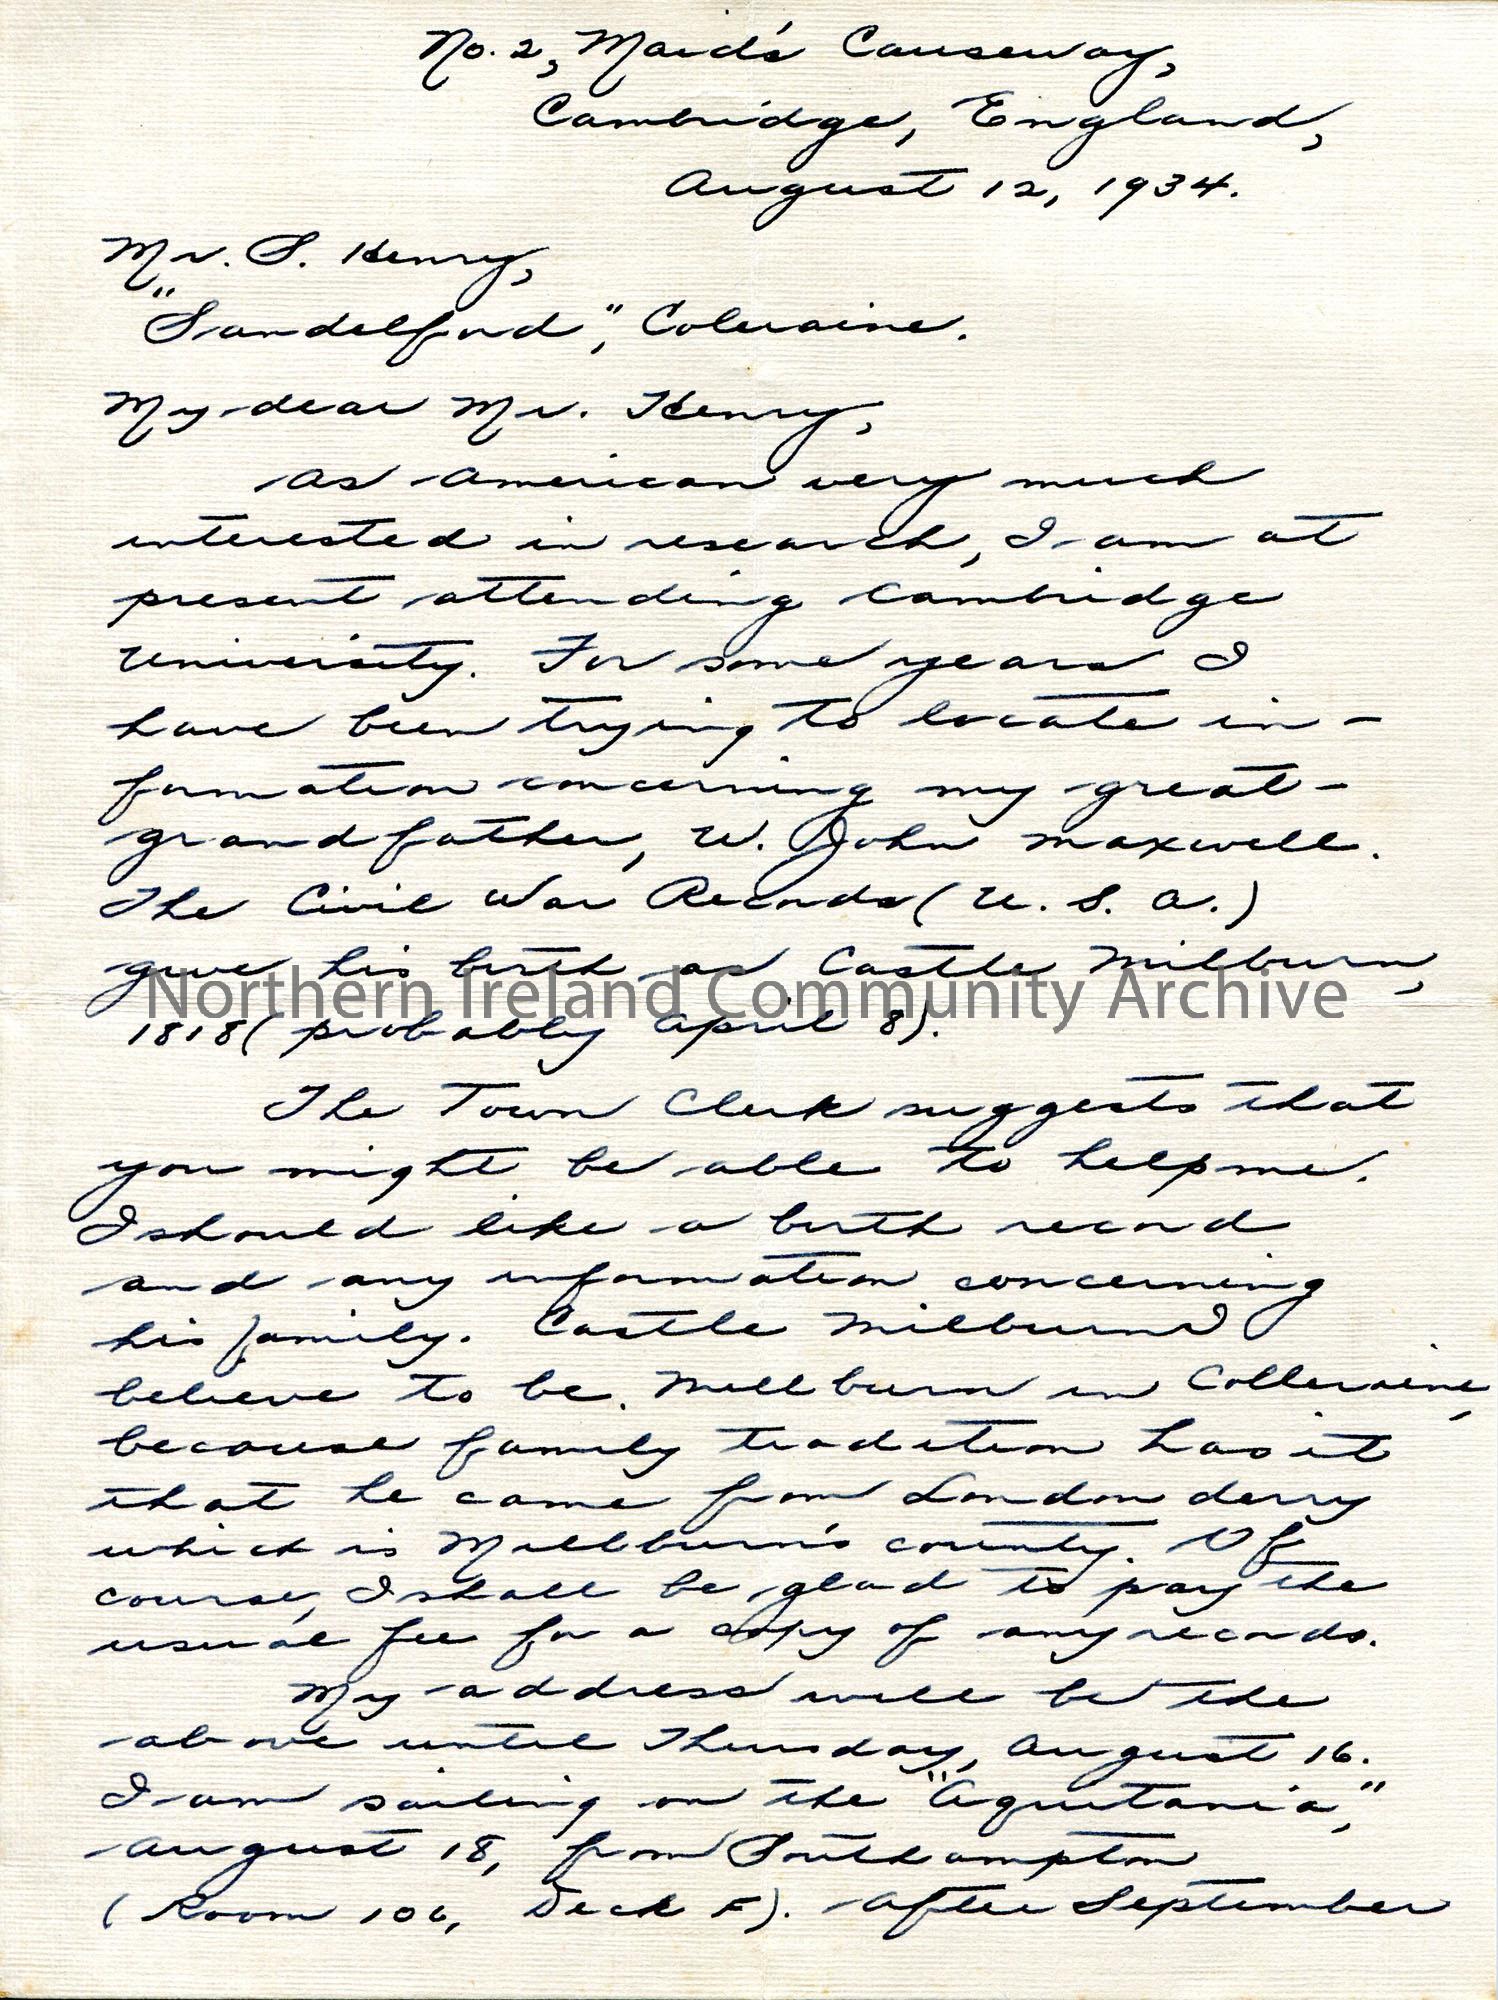 No. 2, Maid's Causeway,
Cambridge, England,
August 12, 1934.
Mr. S. Henry,
"Sandelford", Coleraine.
My dear Mr. Henry,
As American very much
interested in research, I am at
present attending Cambridge
University. For some years I
have been trying to locate in-
formation concerning my great-
grandfather, W. John Maxwell.
The Civil War Records (U. S. A.)
give his birth as Castle Milburn,
Northern Ireland Community Archive
1818 (probably April 8).
The Town Clerk suggests that
you might be able to help me.
I should like a birth record
and any information concerning
his family. Castle Milburn I
believe to be Millburn in Colleraine,
because family tradition has it
that he came from Londonderry
which is Millburn's county. Of
course, I shall be glad to pay the
usual fee for a copy of any records.
My address will be the
above until Thursday, August 16.
I am sailing on the "Aquitania,"
August 18, from Southampton
(Room 106, Deck F). After September